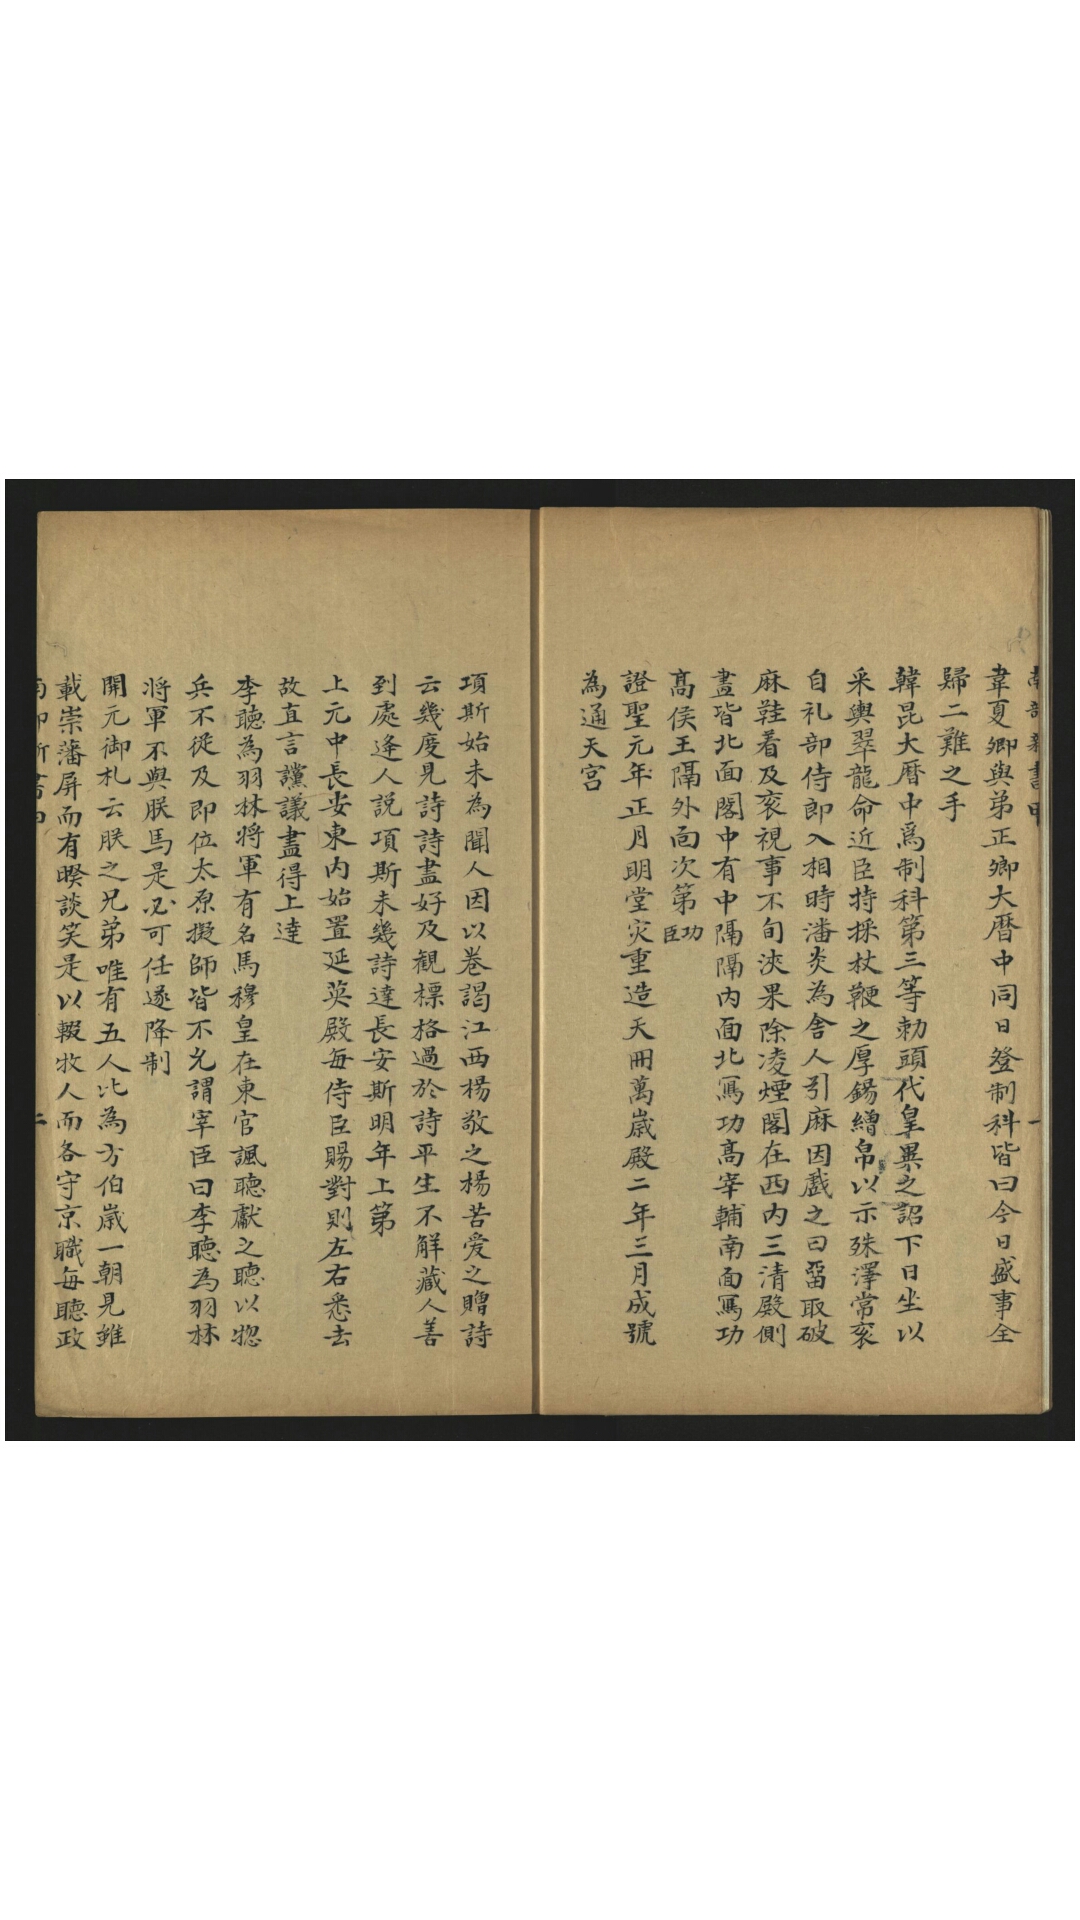 韋夏卿與弟正卿大曆中同日登制科皆曰今日盛事全
歸二難之手
韓昆大曆中爲制科第三等勅頭代皇異之詔下日坐以
采輿翠龍命近臣持採杖鞭之厚錫繒帛以示殊澤常衮
自礼部侍郎入相時潘炎為舍人引麻因戲之曰畱取破
麻鞋着及衮視事不旬浹果除凌煙閣在西内三清殿側
畫皆北面閣中有中隔隔内面北冩功高宰輔南面冩功
髙侯王隔外面次第功臣
證聖元年正月明堂灾重造天冊萬歲殿二年三月成號
為通天宫
項斯始未為聞人因以卷謁江西楊敬之楊苦爱之贈詩
云幾度見詩詩盡好及観標格過於詩平生不解藏人善
到處逢人説項斯未幾詩達長安斯明年上第
上元中長安東内始置延英殿每侍臣賜對則左右悉去
故直言讜議盡得上達
李聽為羽林将軍有名馬穆皇在東官諷聽獻之聽以捴
兵不從及即位太原擬師皆不允謂宰臣曰李聽為羽林
將軍不與朕馬是必可任遂降制
開元御札云朕之兄弟唯有五人比為方伯歲一朝見雖
載崇藩屏而有暌談笑是以輟牧人而各守京職每聽政